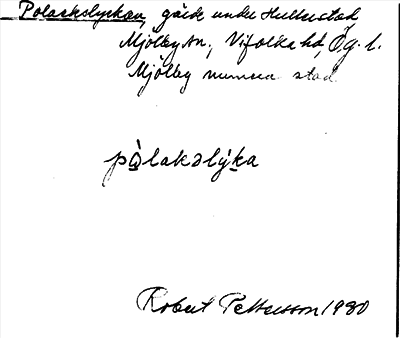 Polackslyckan, gärde under Hulterstad
Mjölby sn, Vifolka hd, Ög. l.
Mjölby numera stad
pòlakəlýka
Robert Pettersson 1980